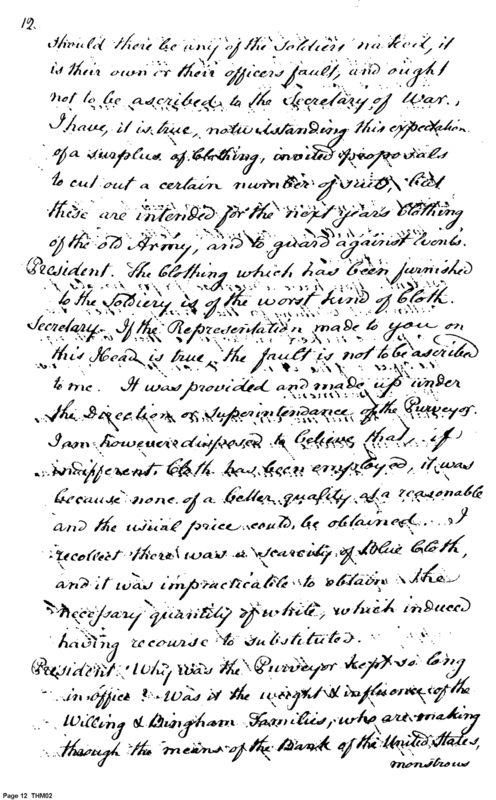 12.
should there be any of the Soldiers naked, it
is their own or their officers fault, and ought
not to be ascribed to the Secretary of War.,
I have, it is true, notwithstanding this expectation
of a surplus of Clothing, invited proposals
to cut out a certain number of suits, but
these are intended for the next years Clothing
of the old Army, and to guard against events.
President. The Clothing which has been furnished
to the Soldiery is of the worst kind of Cloth.
Secretary. If the Representation made to you on
this Head is true, the fault is not to be ascribed
to me. It was provided and made up under
the Direction or Superintendance of the Purveyor.
I am however disposed to believe that, if
indifferent Cloth has been employed, it was
because none of a better quality at a reasonable
and the usual price could be obtained. I
recollect there was a scarcity of blue Cloth,
and it was impracticable to obtain the
necessary quantity of white, which induced
having recourse to substitutes.
President. Why was the Purveyor kept so long
in office? Was it the weight & influence of the
Willing & Bingham Families, who are making
through the means of the Bank of the United States,
monstrous
Page 12 THM02